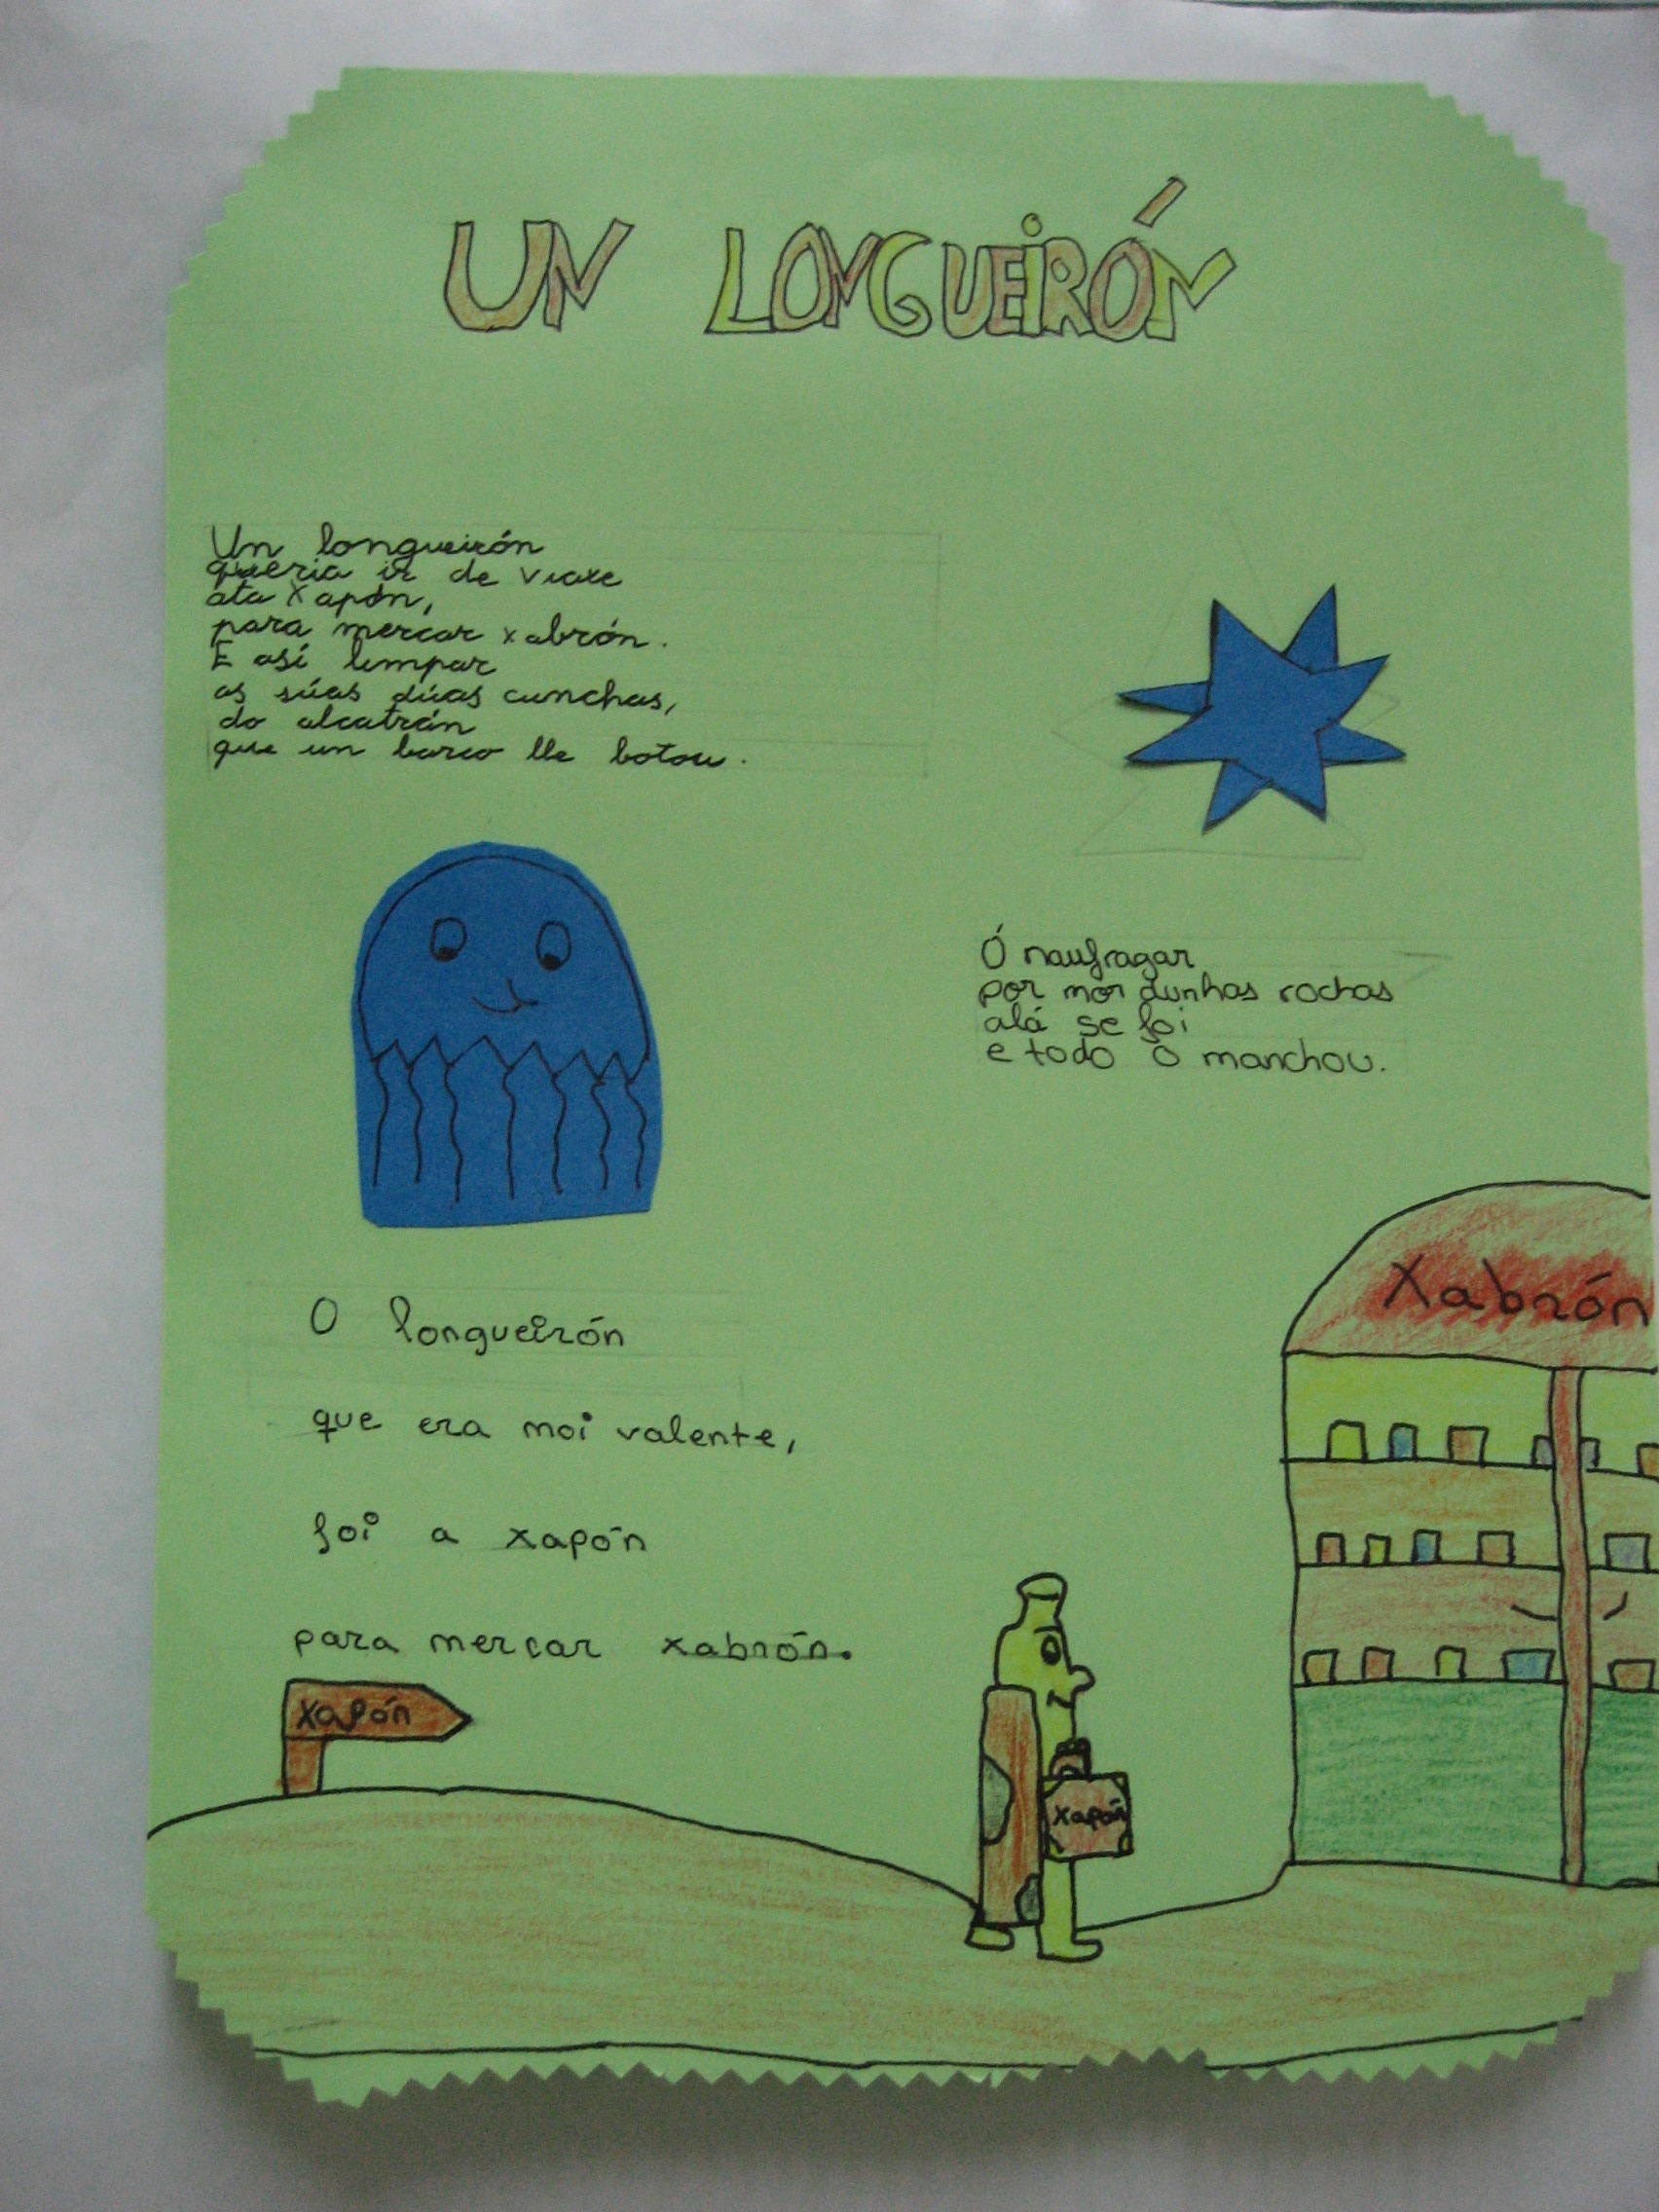 UN LONGUEIRÓN
Un longueirón
queria ir de viaxe
ata Xapón,
para mercar xabrón.
E así limpar
as súas dúas cunchas,
do alcatrán
que un barco lle botou.
Ó naufragar
por mor dunhas rochas
alá se foi
e todo o manchou.
O longueirón
que era moi valente,
foi a xapón
para mercar xabrón.
Xabrón
Xapón
Xapón